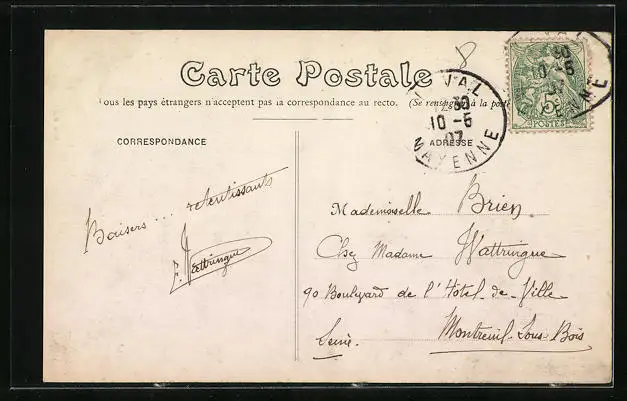 Carte Postale
Tous les pays étrangers n'acceptent pas la correspondance au recto. (Se renseigner à la poste
CORRESPONDANCE
ADRESSE
VAL
30
10-5
07
MAYENNE
VAL
30
10-5
07
ENNE
5
POSTES
Baisers... retentissants
F. Wattringue
Mademoiselle Brien
Chez Madame Wattringue
90 Boulevard de l'Hôtel-de-Ville
Seine. Montreuil-Sous-Bois